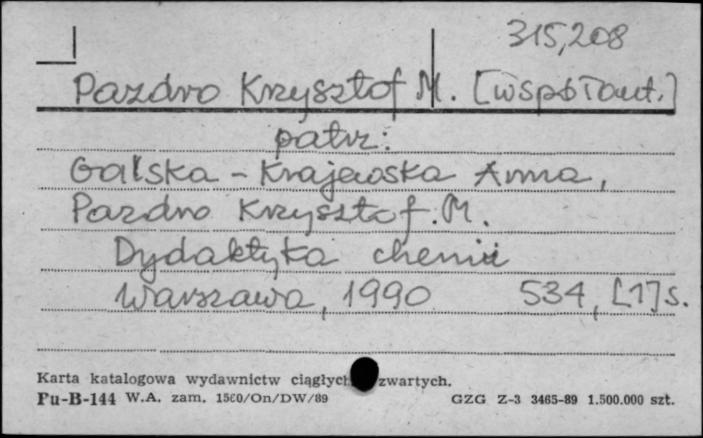 315,208
Pazdro Krzysztof M. [współaut.]
patrz:
Galska-Krajewska Anna,
Pazdro Krzysztof M.
Dydaktyka chemii
Warszawa, 1990 534, [1] s.
Karta katalogowa wydawnictw ciągłych zwartych.
Pu-B-144 W.A. zam. 1560/On/DW/89 GZG Z-3 3465-89 1.500.000 szt.